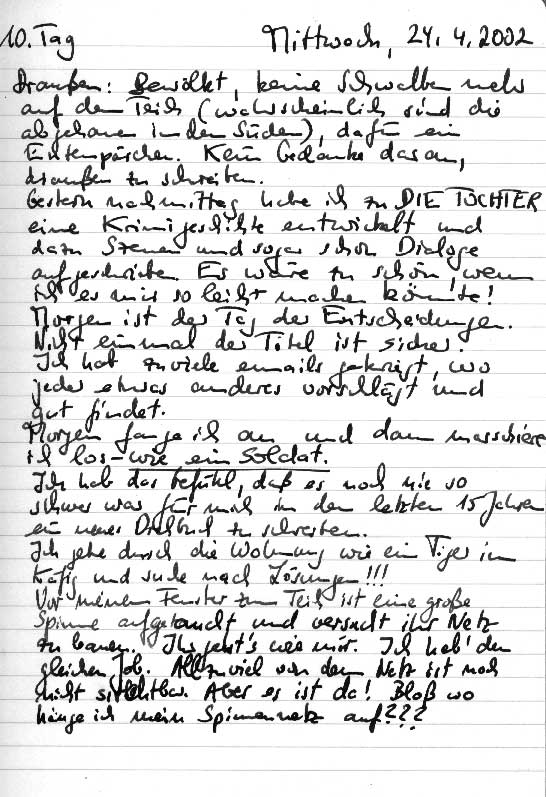 10. Tag Mittwoch, 24.4.2002
Draußen: Bewölkt, keine Schwalben mehr
auf dem Teich (wahrscheinlich sind die
abgehauen in den Süden), dafür ein
Entenpärchen. Kein Gedanke daran,
draußen zu schreiben.
Gestern nachmittag habe ich zu DIE TOCHTER
eine Krimigeschichte entwickelt und
dazu Szenen und sogar schon Dialoge
aufgeschrieben. Es wäre zu schön, wenn
ich es mir so leicht machen könnte!
Morgen ist der Tag der Entscheidungen.
Nicht einmal der Titel ist sicher.
Ich hab zuviele emails gekriegt, wo
jeder etwas anderes vorschlägt und
gut findet.
Morgen fange ich an und dann marschiere
ich los - wie ein Soldat.
Ich hab das Gefühl, daß es noch nie so
schwer war für mich in den letzten 15 Jahren
ein neues Drehbuch zu schreiben.
Ich gehe durch die Wohnung wie ein Tiger im
Käfig und suche nach Lösungen!!!
Vor meinem Fenster zum Teich ist eine große
Spinne aufgetaucht und versucht ihr Netz
zu bauen. Ihr geht's wie mir. Ich hab' den
gleichen Job. Allzuviel von dem Netz ist noch
nicht sichtbar. Aber es ist da! Bloß wo
hänge ich mein Spinnennetz auf???